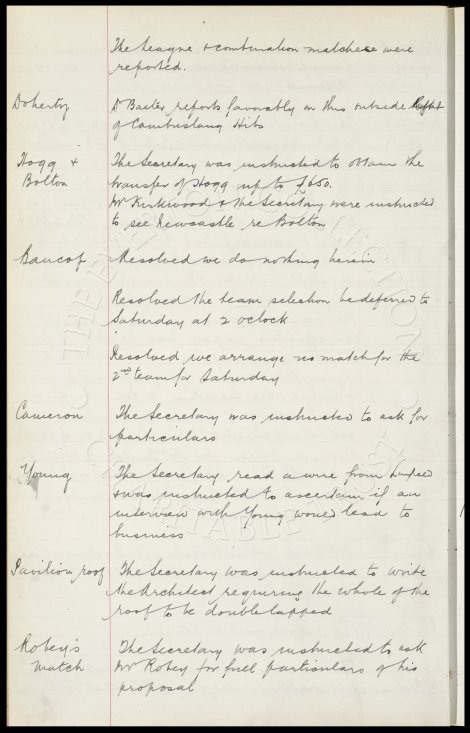 The League & Combination matches were
reported.
Doherty Dr Baxter reports favorably on this outside Right
of Cambuslang Hibs
Hogg & The Secretary was instructed to obtain the
Bolton transfer of Hogg up to £650.
Mr Kirkwood & the Secretary were instructed
to see Newcastle re Bolton
Bancop Resolved we do nothing herein
Resolved the team selection be deferred to
Saturday at 2 oclock
Resolved we arrange no match for the
2nd team for Saturday
Cameron The Secretary was instructed to ask for
particulars
Young The Secretary read a wire from
& was instructed to ascertain if an
interview with Young would lead to
business
Pavilion roof The Secretary was instructed to write
the Architect requiring the whole of the
roof to be doublelapped
Robey's The Secretary was instructed to ask
Match Mr Robey for full particulars of his
proposal
THE EVERTON COLLECTION
CHARITABLE TRUST